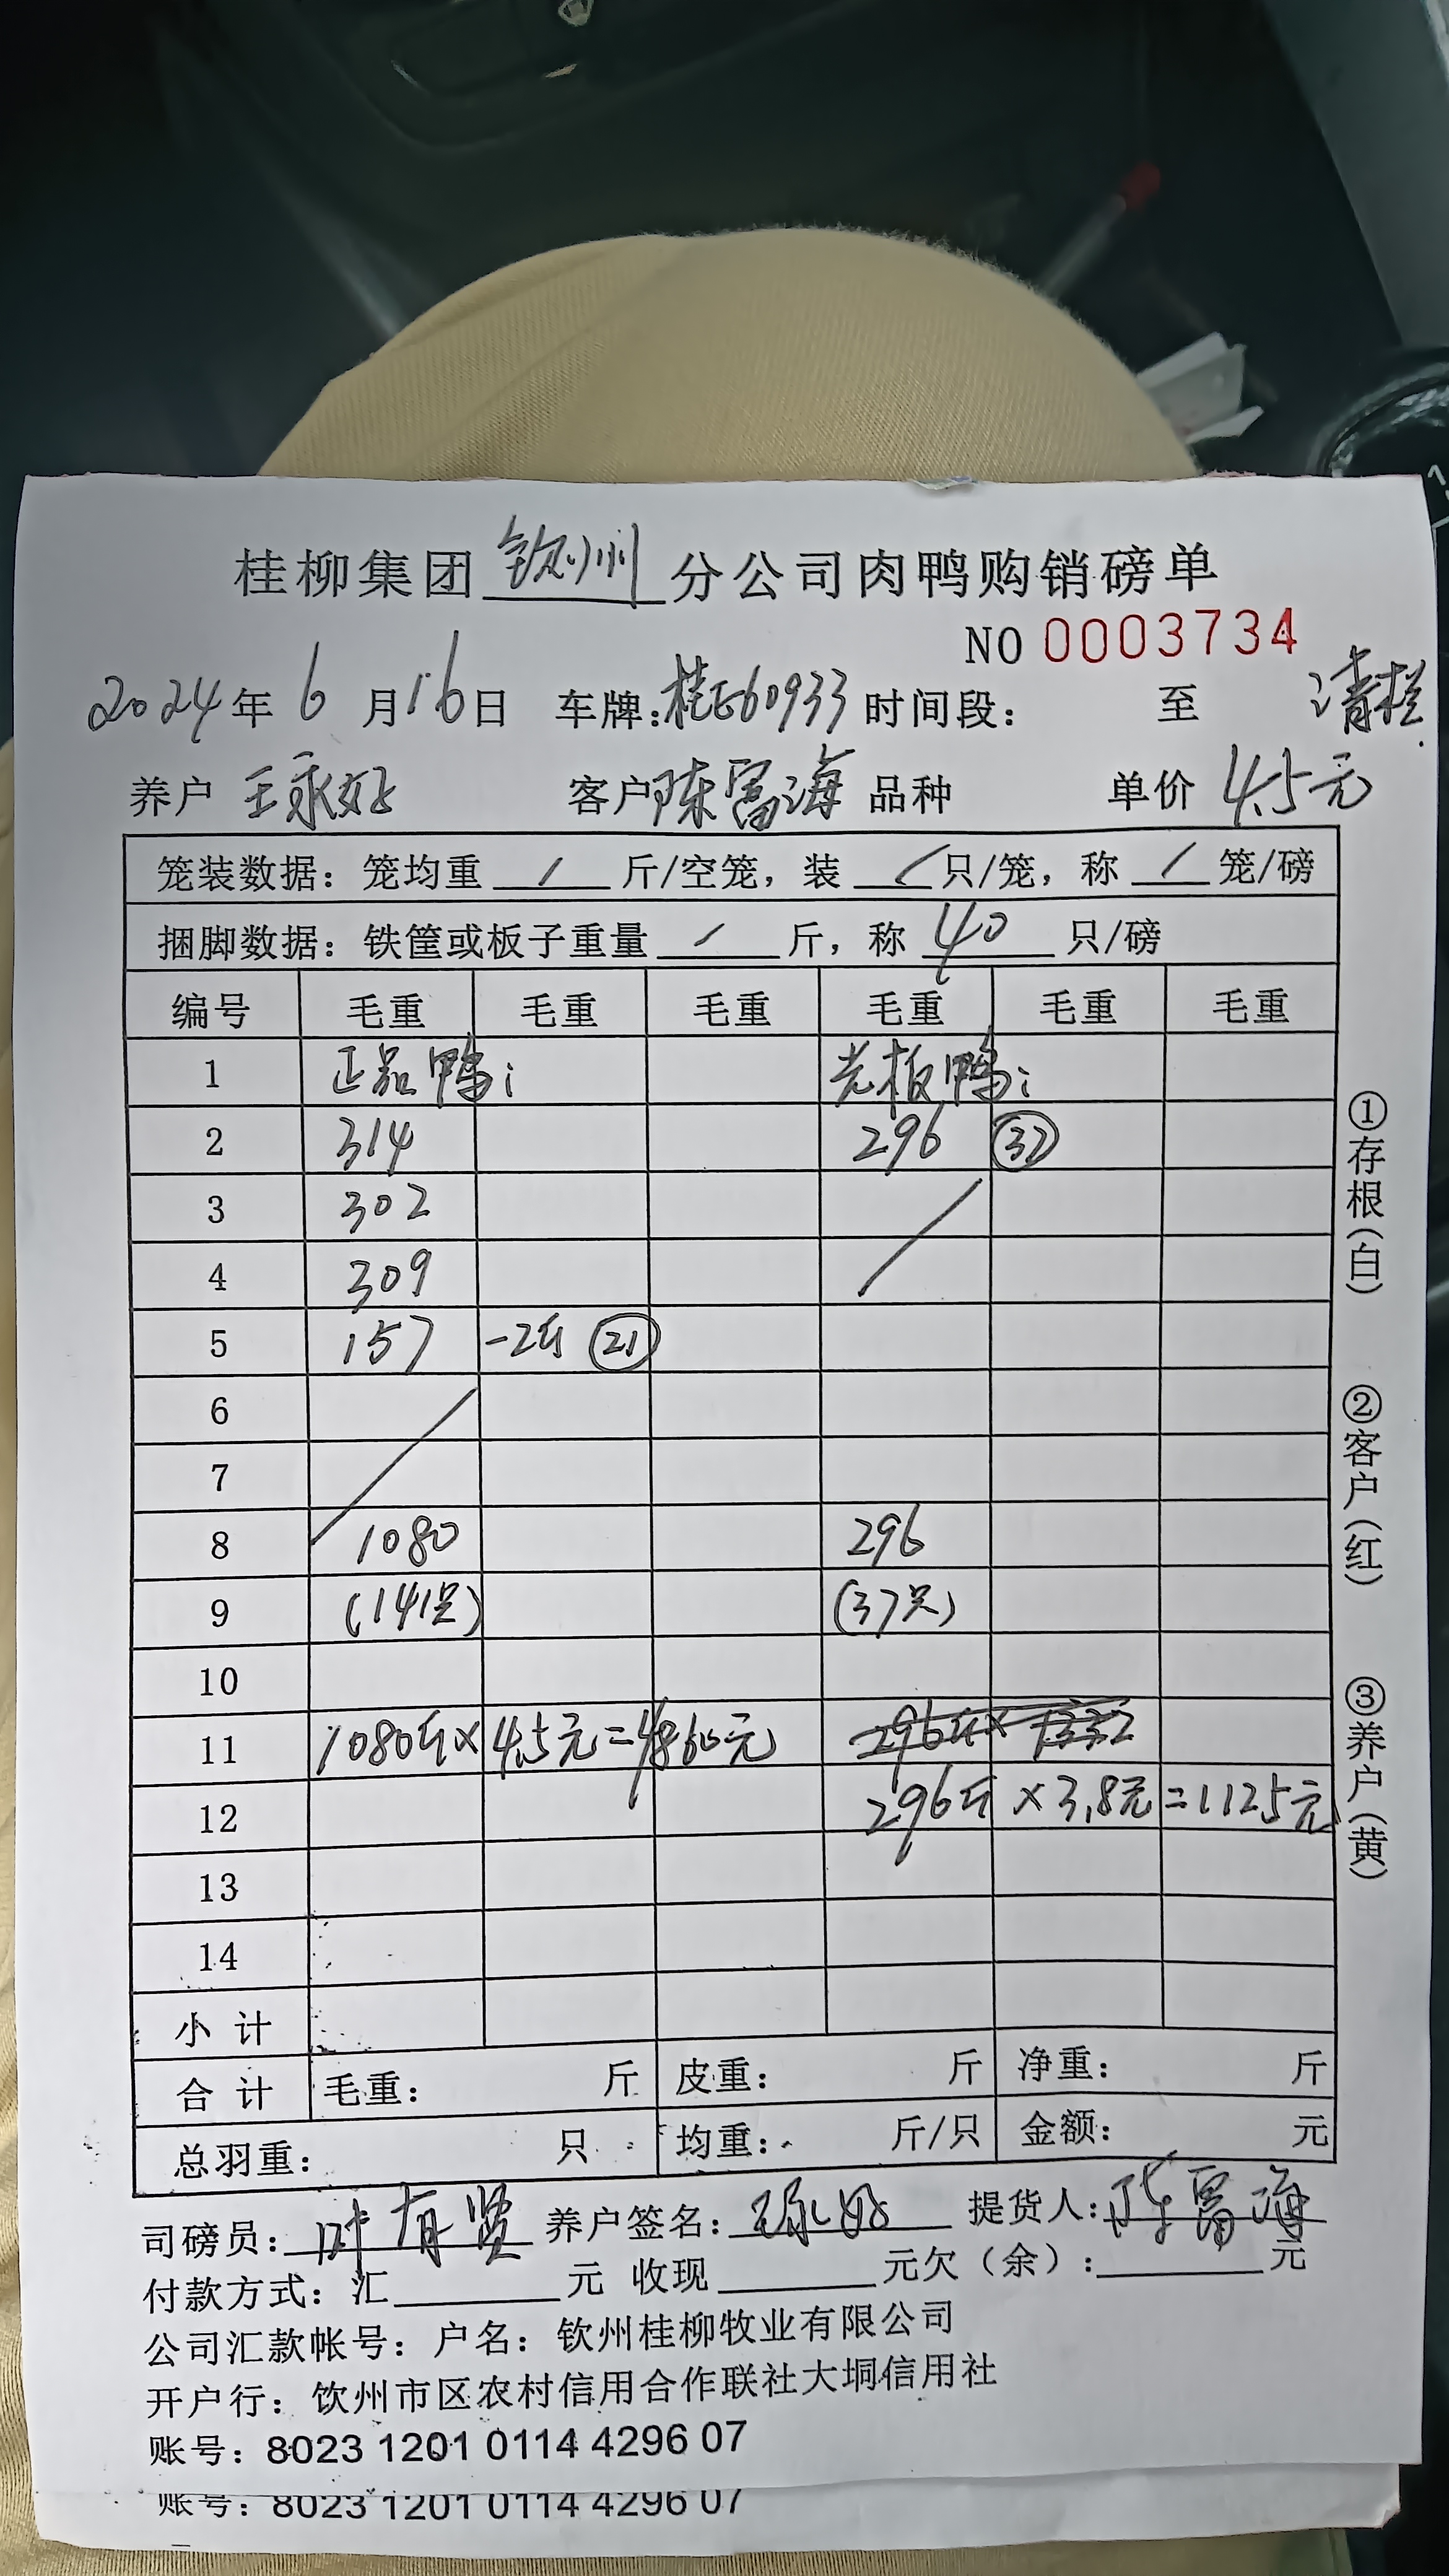 桂柳集团钦州分公司肉鸭购销磅单
NO 0003734
2024年 6 月 16日 车牌:桂E60933 时间段: 至 清栏
养户 王永好 客户 陈富海 品种 单价 4.5元
笼装数据:笼均重 / 斤/空笼,装 / 只/笼,称 / 笼/磅
捆脚数据:铁筐或板子重量 / 斤,称 40 只/磅
编号 毛重 毛重 毛重 毛重 毛重 毛重
1 正品鸭: 光板鸭:
2 314 296 (37)
3 302
4 309
5 157 -2斤 (21)
6
7
8 1080 296
9 (141只) (37只)
10
11 1080斤×4.5元=4860元 296斤×
12 296斤×3.8元=1125元
13
14
小 计
合 计 毛重: 斤 皮重: 斤 净重: 斤
总羽重: 只 均重: 斤/只 金额: 元
司磅员:叶有贤 养户签名:王永好 提货人:陈富海
付款方式:汇 元 收现 元欠(余): 元
公司汇款帐号:户名:钦州桂柳牧业有限公司
开户行:钦州市区农村信用合作联社大垌信用社
账号:8023 1201 0114 4296 07
账号:8023 1201 0114 4296 07
①存根(白)
②客户(红)
③养户(黄)